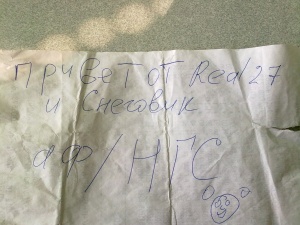 Привет от Real27
и Снеговик
ФФ/НГС